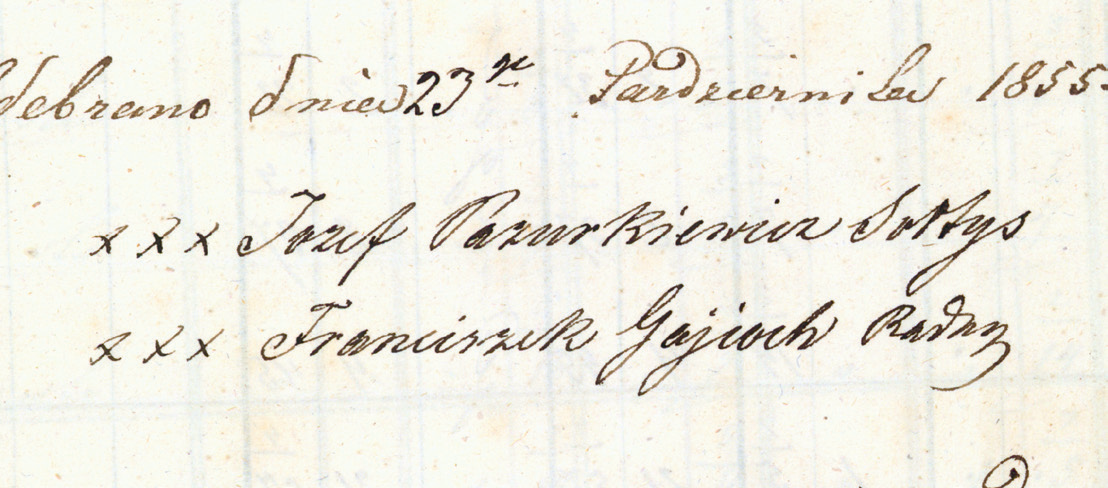 debrano dnia 23go Pardziernika 1855.
x x x Jozef Pazurkiewicz Sołtys
x x x Franciszek Gajioch Radny